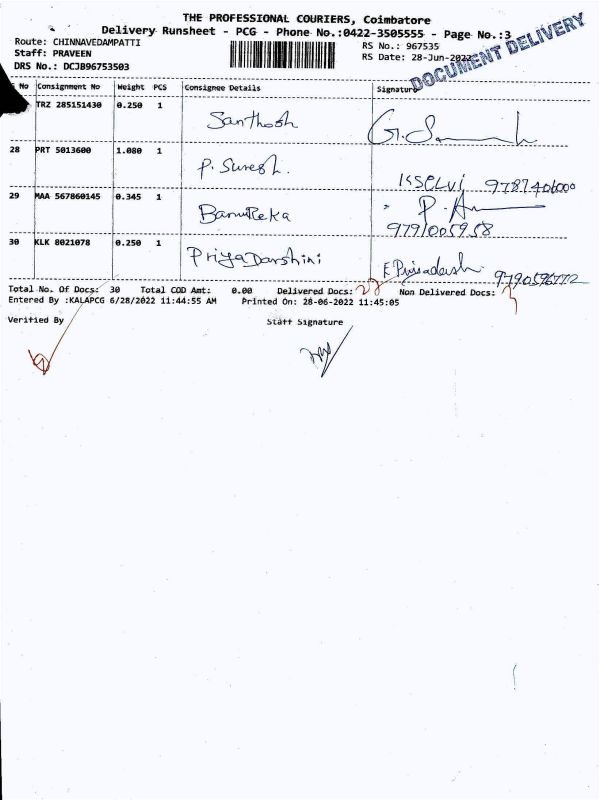 THE PROFESSIONAL COURIERS, Coimbatore
Delivery Runsheet - PCG - Phone No.:0422-3505555 - Page No.:3
Route: CHINNAVEDAMPATTI
RS No.: 967535
Staff: PRAVEEN
RS Date: 28-Jun-2022
DRS No.: DCJB96753503
DOCUMENT DELIVERY
No Consignment No Weight PCS Consignee Details Signature
TRZ 285151430 0.250 1 Santhosh
28 PRT 5013600 1.080 1 P. Suresh. KSELVI 9787406000
29 MAA 567860145 0.345 1 BanuReka
9791005958
30 KLK 8021078 0.250 1 PriyaDarshini E.Priyadarsh 9790596772
Total No. Of Docs: 30 Total COD Amt: 0.00 Delivered Docs: Non Delivered Docs:
Entered By :KALAPCG 6/28/2022 11:44:55 AM Printed On: 28-06-2022 11:45:05
Verified By Staff Signature